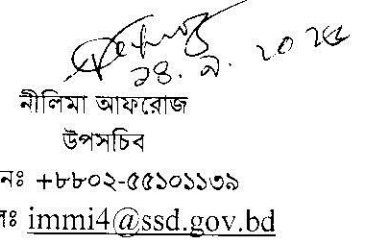 ২৪. ৯. ২০২৫
নীলিমা আফরোজ
উপসচিব
নঃ +৮৮০২-৫৫১০১১৩৯
লঃ immi4@ssd.gov.bd